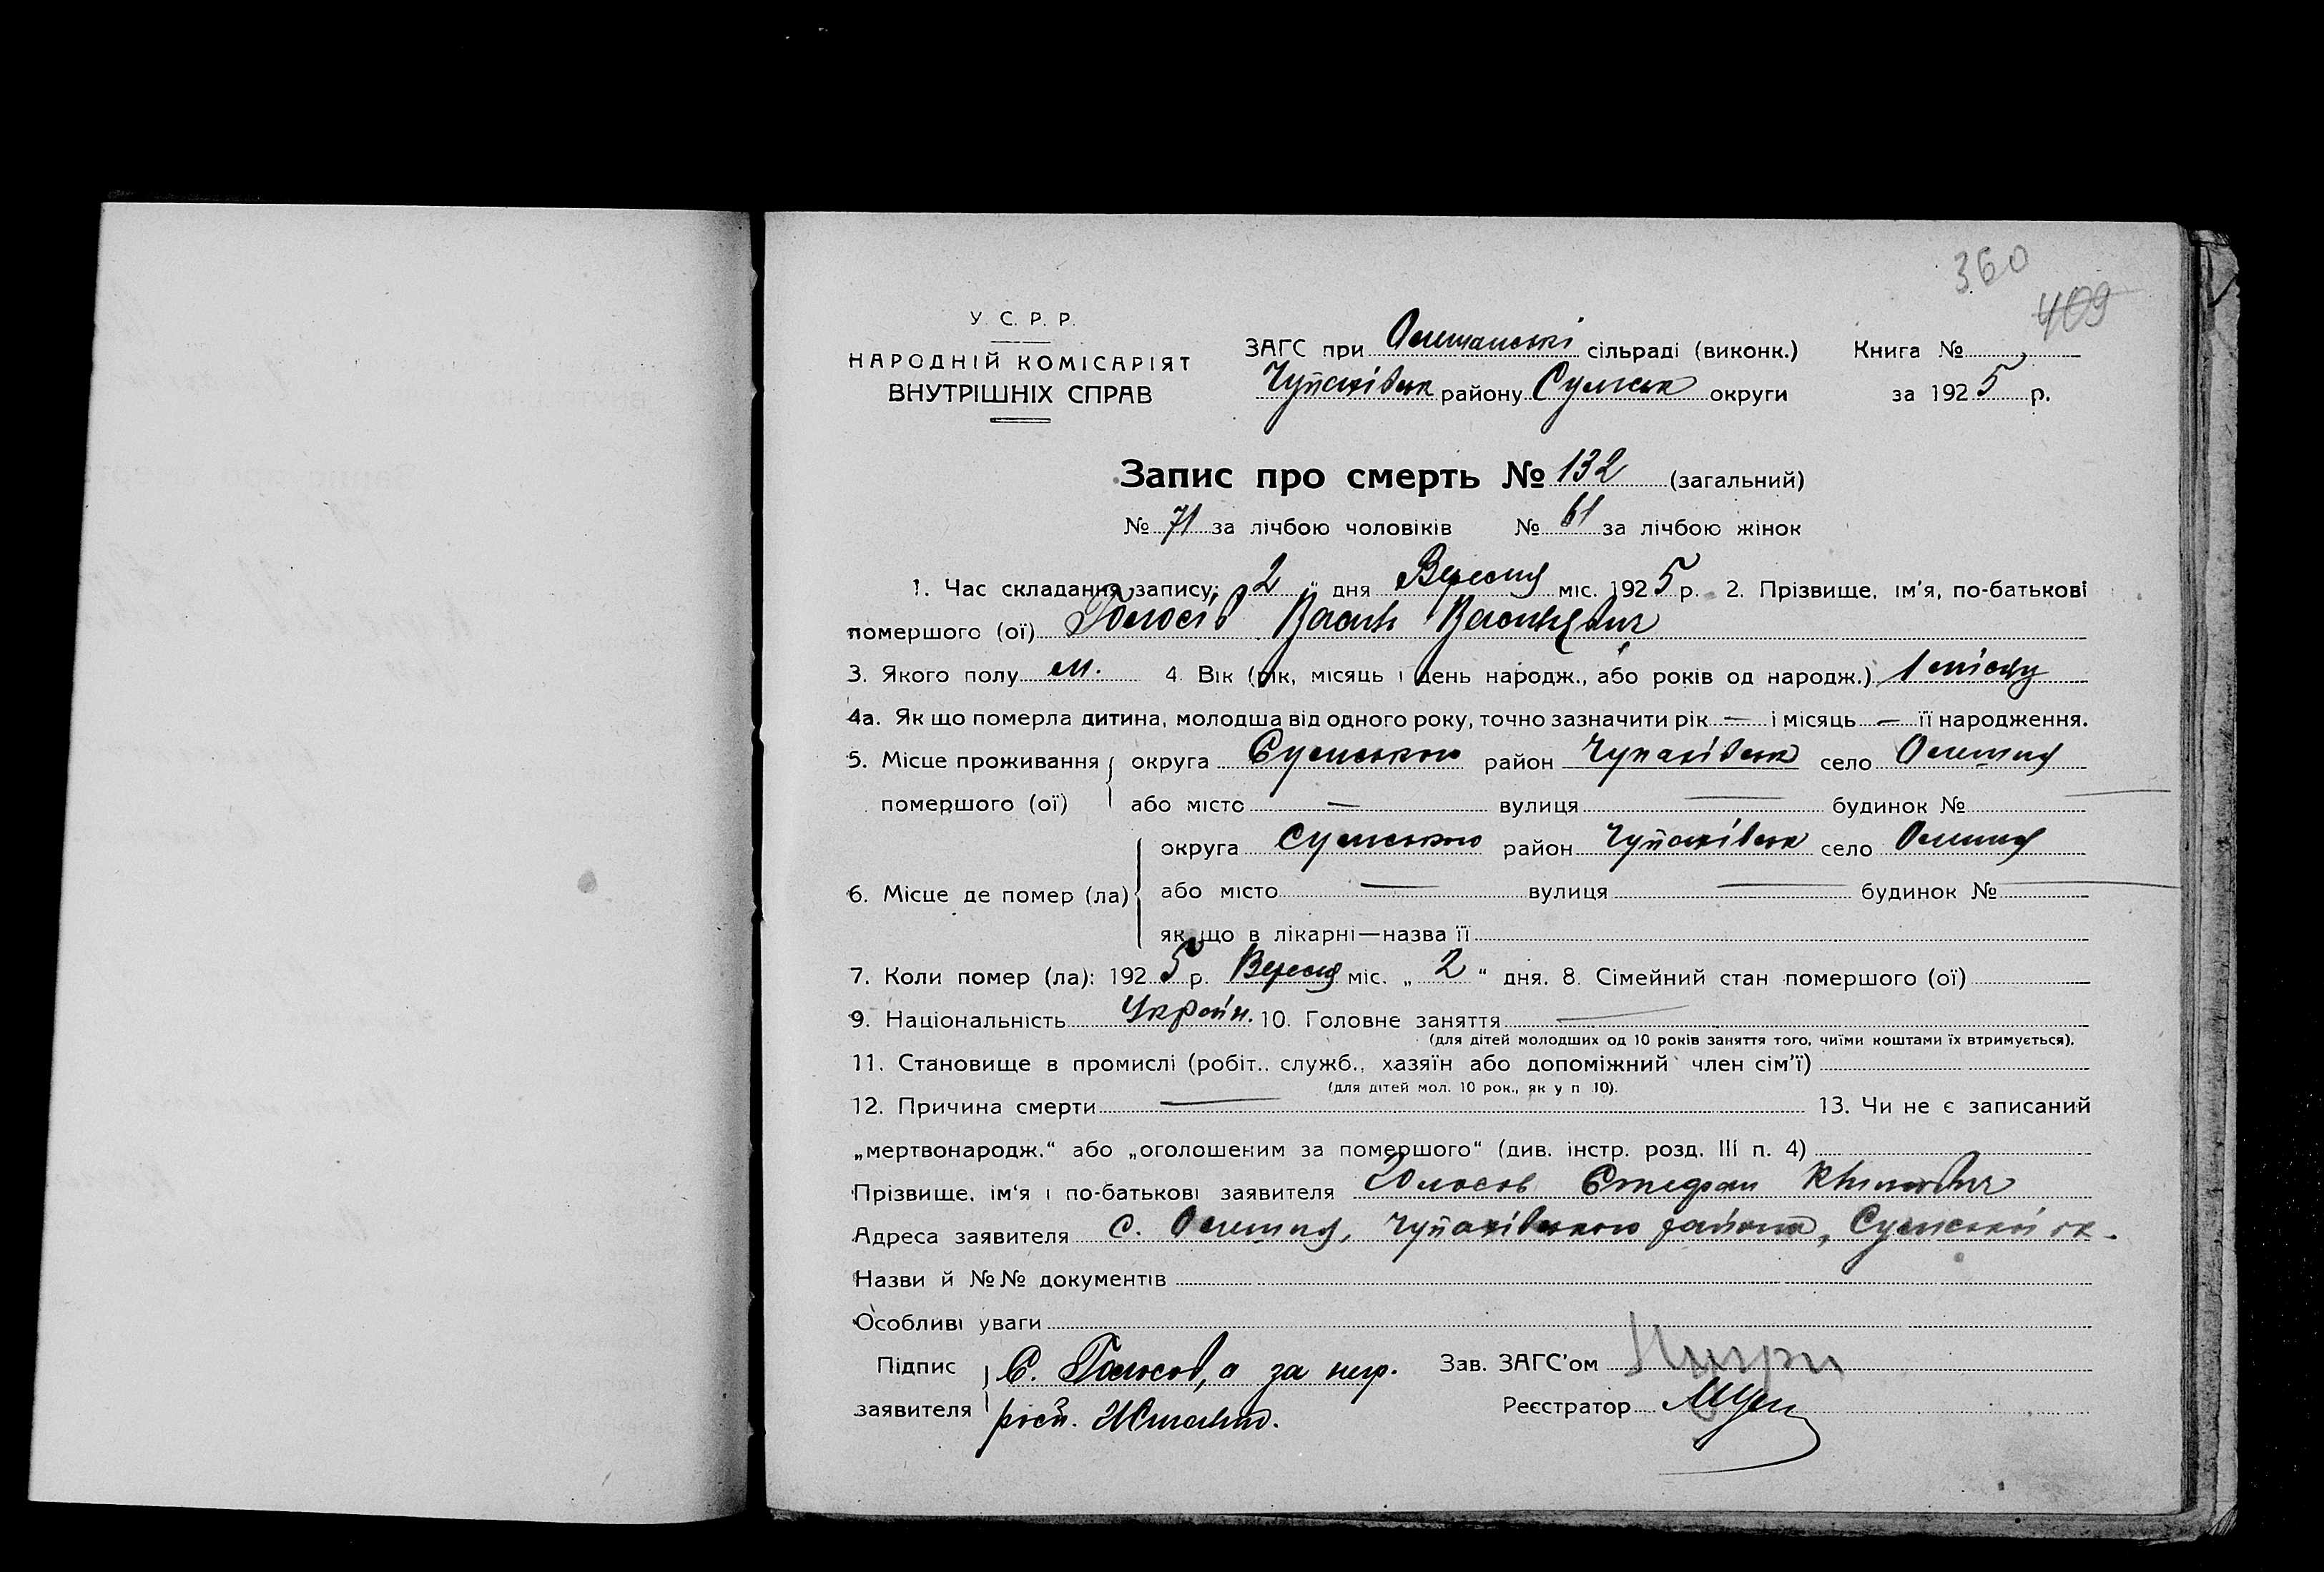 360
409
У. С. Р. Р.
НАРОДНІЙ КОМІСАРІЯТ
ВНУТРІШНІХ СПРАВ
ЗАГС при Олешанські сільраді (виконк.) Книга №
Чупахівськ району Сумськ округи за 1925 р.
Запис про смерть № 132 (загальний)
№ 71 за лічбою чоловіків № 61 за лічбою жінок
1. Час складання запису: 2 „ дня Вересня міс. 1925 р. 2. Прізвище, ім'я, по-батькові
помершого (ої) Голосів Василь Васильевич
3. Якого полу м. 4. Вік (рік, місяць і день народж., або років од народж.) 1 місяц
4а. Як що померла дитина, молодша від одного року, точно зазначити рік — і місяць — її народження.
5. Місце проживання округа Сумською район Чупахівськ село Олешня
помершого (ої) або місто — вулиця — будинок № —
округа Сумською район Чупахівськ село Олешня
6. Місце де помер (ла) або місто — вулиця — будинок № —
як що в лікарні—назва її
7. Коли помер (ла): 1925 р. Вересня міс. „ 2 “ дня. 8. Сімейний стан помершого (ої)
9. Національність Україн. 10. Головне заняття —
(для дітей молодших од 10 років заняття того, чиїми коштами їх втримується).
11. Становище в промислі (робіт., служб., хазяїн або допоміжний член сім'ї)
(для дітей мол. 10 рок., як у п 10).
12. Причина смерти — 13. Чи не є записаний
„мертвонародж.“ або „оголошеним за помершого“ (див. інстр. розд. III п. 4)
Прізвище, ім'я і по-батькові заявителя Голосов Стефан
Адреса заявителя с. Олешня, Чупахівського района, Сумської ок.
Назви й №№ документів
Особливі уваги
Підпис С. Голосов, а за негр. Зав. ЗАГС'ом
заявителя росп. Реєстратор